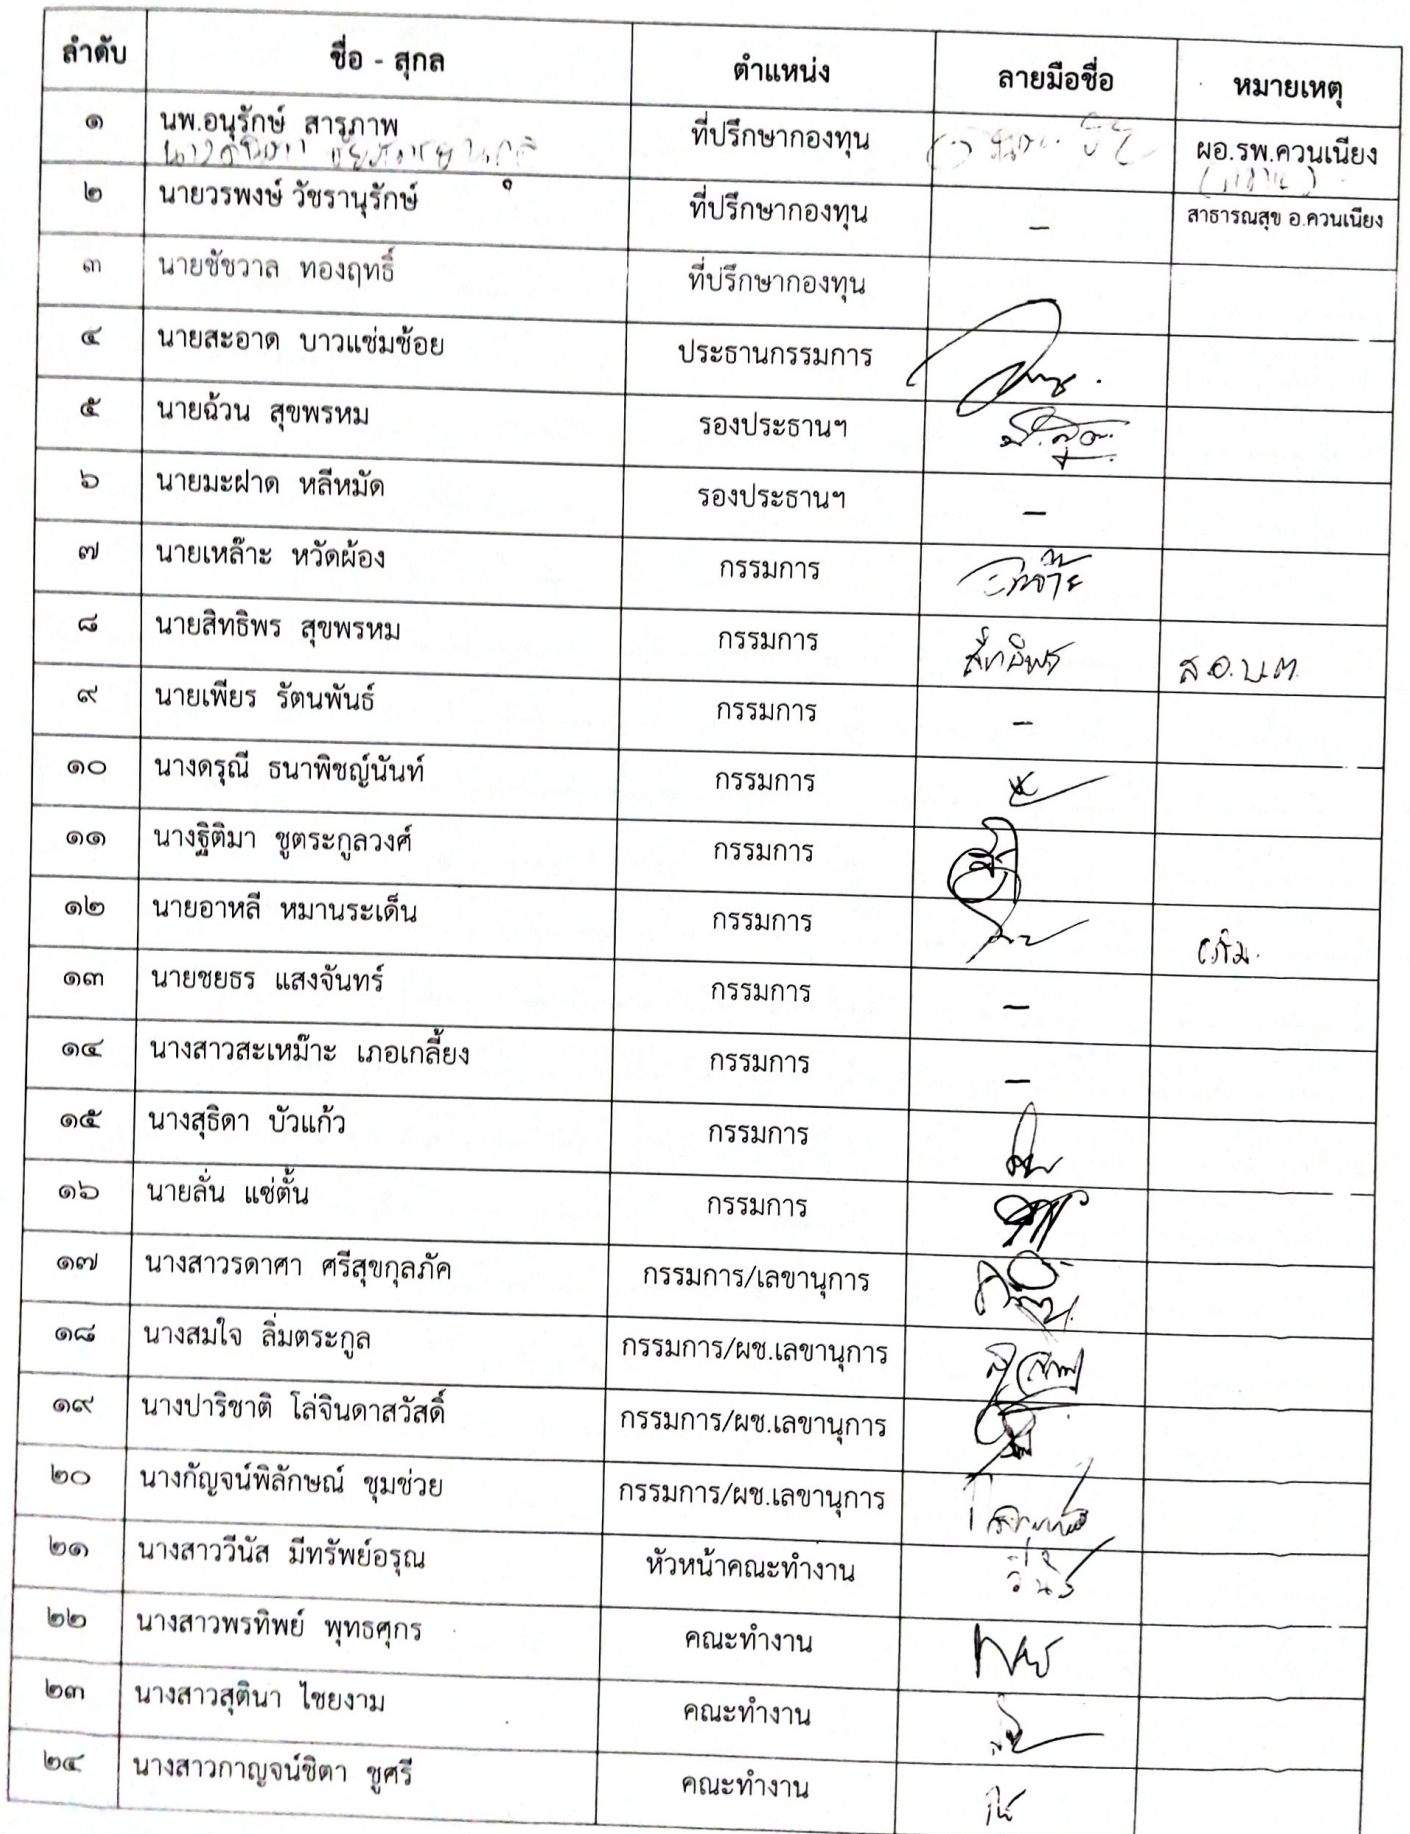 ลำดับ ชื่อ - สุกล ตำแหน่ง ลายมือชื่อ หมายเหตุ
๑ นพ.อนุรักษ์ สารภาพ ที่ปรึกษากองทุน ผอ.รพ.ควนเนียง
๒ นายวรพงษ์ วัชรานุรักษ์ ที่ปรึกษากองทุน – สาธารณสุข อ.ควนเนียง
๓ นายชัชวาล ทองฤทธิ์ ที่ปรึกษากองทุน
๔ นายสะอาด บาวแช่มช้อย ประธานกรรมการ
๕ นายฉ้วน สุขพรหม รองประธานฯ
๖ นายมะฝาด หลีหมัด รองประธานฯ –
๗ นายเหล๊าะ หวัดผ้อง กรรมการ
๘ นายสิทธิพร สุขพรหม กรรมการ สิทธิพร ส.อ.บ.ต.
๙ นายเพียร รัตนพันธ์ กรรมการ –
๑๐ นางดรุณี ธนาพิชญ์นันท์ กรรมการ
๑๑ นางฐิติมา ชูตระกูลวงศ์ กรรมการ
๑๒ นายอาหลี หมานระเด็น กรรมการ
๑๓ นายชยธร แสงจันทร์ กรรมการ –
๑๔ นางสาวสะเหม๊าะ เภอเกลี้ยง กรรมการ –
๑๕ นางสุธิดา บัวแก้ว กรรมการ
๑๖ นายลั่น แซ่ตั้น กรรมการ
๑๗ นางสาวรดาศา ศรีสุขกุลภัค กรรมการ/เลขานุการ
๑๘ นางสมใจ ลิ่มตระกูล กรรมการ/ผช.เลขานุการ
๑๙ นางปาริชาติ โล่จินดาสวัสดิ์ กรรมการ/ผช.เลขานุการ
๒๐ นางกัญจน์พิลักษณ์ ชุมช่วย กรรมการ/ผช.เลขานุการ
๒๑ นางสาววีนัส มีทรัพย์อรุณ หัวหน้าคณะทำงาน วีนัส
๒๒ นางสาวพรทิพย์ พุทธศุกร คณะทำงาน
๒๓ นางสาวสุตินา ไชยงาม คณะทำงาน
๒๔ นางสาวกาญจน์ชิตา ชูศรี คณะทำงาน